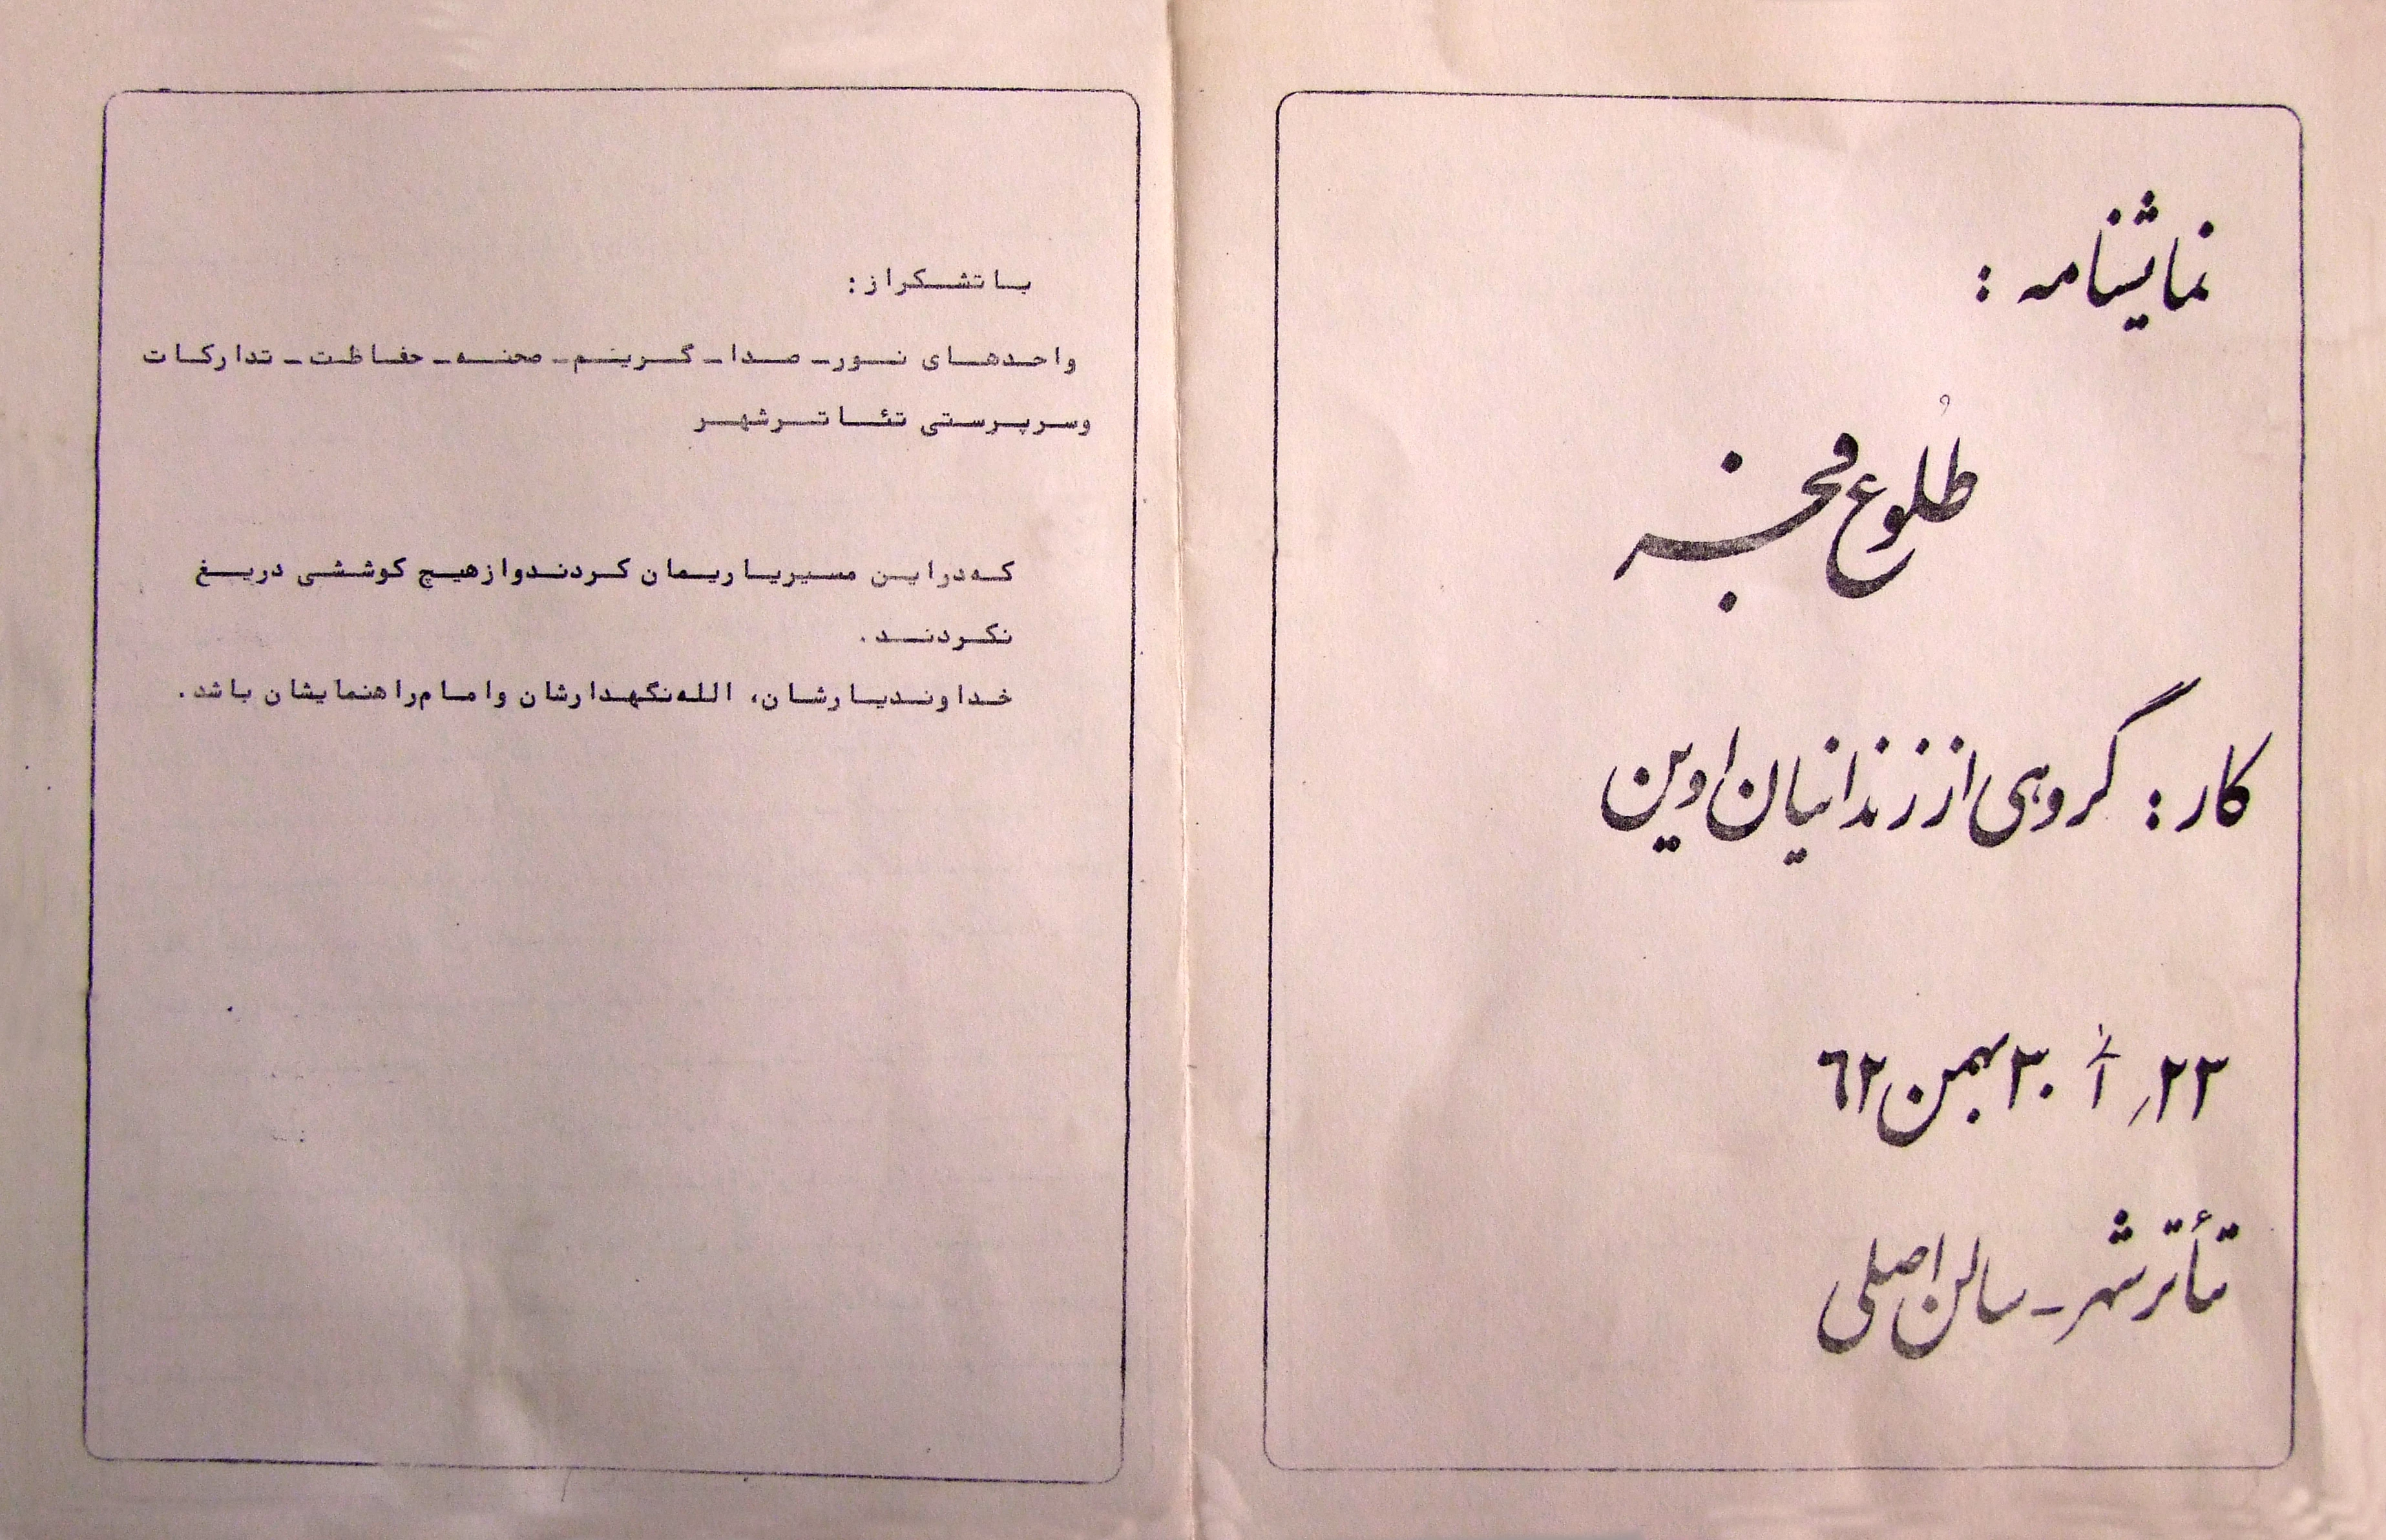 نمایشنامه :
طُلوع فجر
کار : گروهی از زندانیان اوین
۲۲ِ الی ۳۰ بهمن ۶۲
تأتر شهر - سالن اصلی
با تشکر از :
واحدهای نور - صدا - گریم - صحنه - حفاظت - تدارکات
و سرپرستی تئاتر شهر
که در این مسیر یاریمان کردند و از هیچ کوششی دریغ
نکردند .
خداوند یارشان، الله نگهدارشان و امام راهنمایشان باشد .